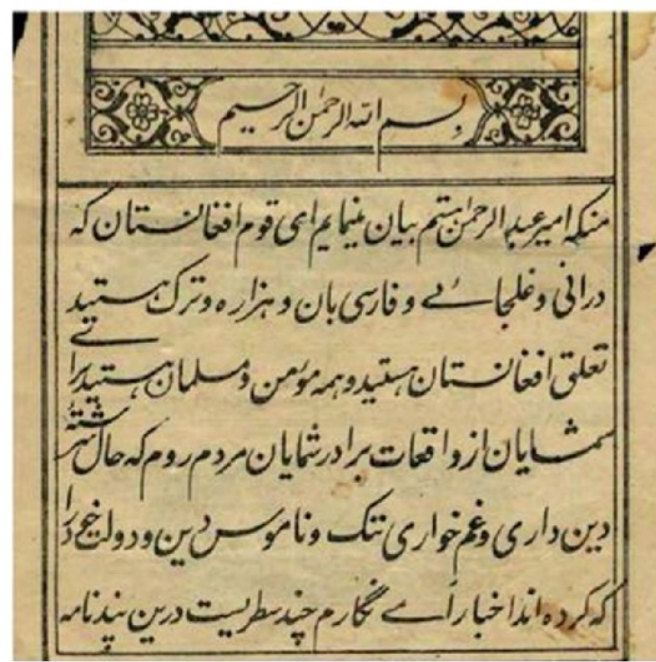 بسم الله الرحمن الرحیم
منکه امیر عبدالرحمن هستم بیان مینمایم ای قوم افغانستان که
درانی و غلجائے و فارسی بان و هزاره و ترک هستید
تعلق افغانستان هستید و همه مؤمن و مسلمان هستید برائے
شمایان از واقعات برادر شمایان مردم روم که حال سر رشتهٔ
دین داری و غم خواری ننگ و ناموس دین و دولت خود را
که کرده اند اخبار اے نگارم چند سطریست درین پندنامه